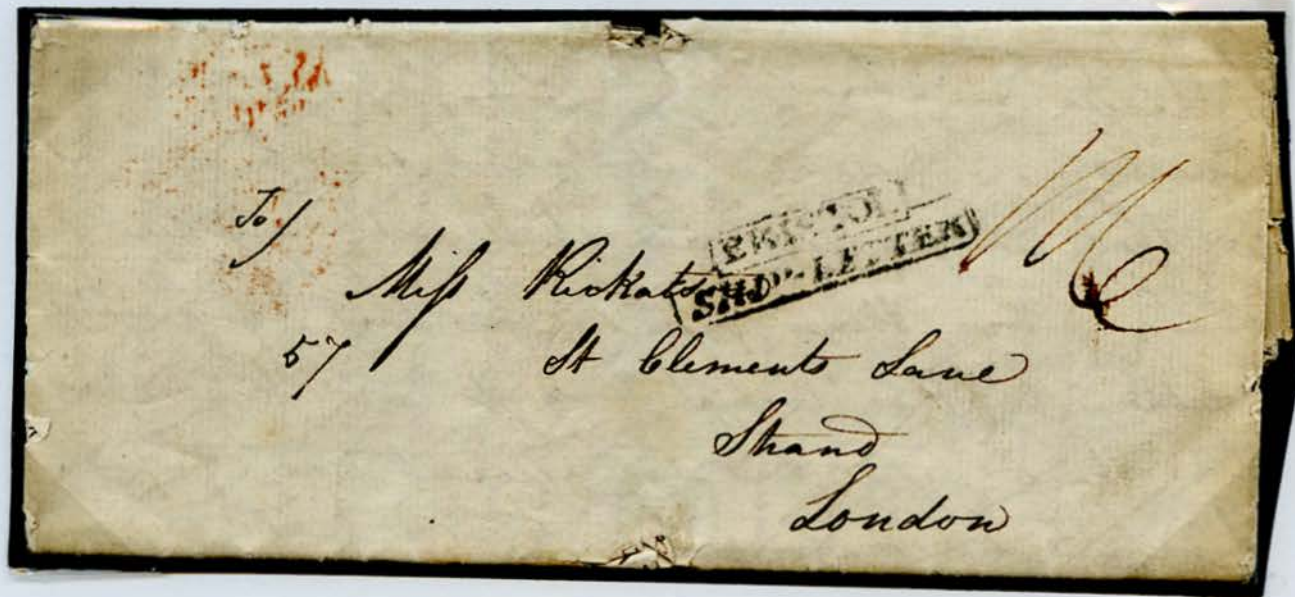 To/
BRISTOL
SHIP-LETTER
Miſs Rickats
57 St Clements Lane
Strand
London